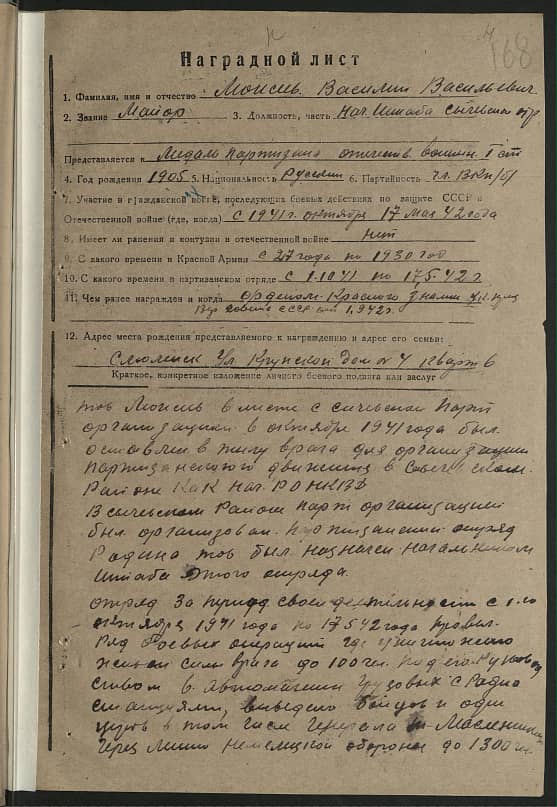 168
Наградной лист
1. Фамилия, имя и отчество Моисеев Василий Васильевич
2. Звание Майор 3. Должность, часть Нач. Штаба сычевский отр.
Представляется к Медаль партизана отечеств. войны I ст
4. Год рождения 1905 5. Национальность Русский 6. Партийность чл. ВКП/б/
7. Участие в гражданской войне, последующих боевых действиях по защите СССР и
Отечественной войне (где, когда) с 1941 г. октября 17 мая 42 года
8. Имеет ли ранения и контузии в отечественной войне нет
9. С какого времени в Красной Армии с 27 года по 1930 год
10. С какого времени в партизанском отряде с 1.10 41 по 17.5.42 г.
11. Чем ранее награжден и когда орденом Красного знамя
СССР 1942 г.
12. Адрес места рождения представляемого к награждению и адрес его семьи:
ул. дом № 4 кварт 6
Краткое, конкретное изложение личного боевого подвига или заслуг
тов в месте с сычевской парт
организацией в октября 1941 года был
оставлен в тылу врага для организации
партизанского движения в
Районе как нач. РО НКВД
В сычевском Районе парт организацией
был организован партизанский отряд
Родина тов был назначен начальником
штаба этого отряда.
отряд за период своей деятельности с 1.10
октября 1941 года по 17 5 42 года провел
Ряд боевых операций где уничтожено
живой силы врага до 100 чел. под его руковод
ством в. автомашин грузовых с Радио
станциями, выведено бойцов и
в том числе генерала
через линию немецкой обороны до 1300 чел.